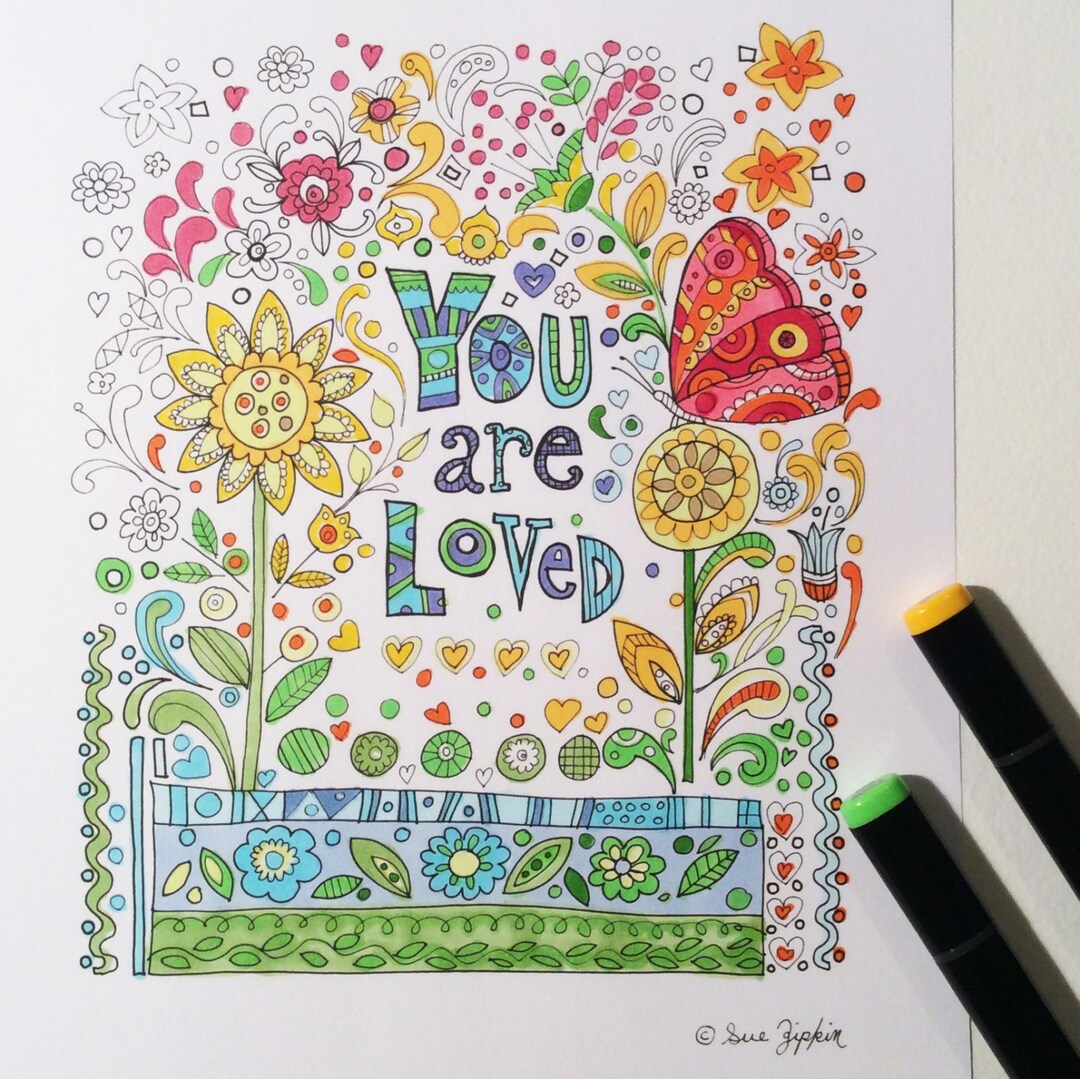 You
are
Loved
© Sue Zipkin